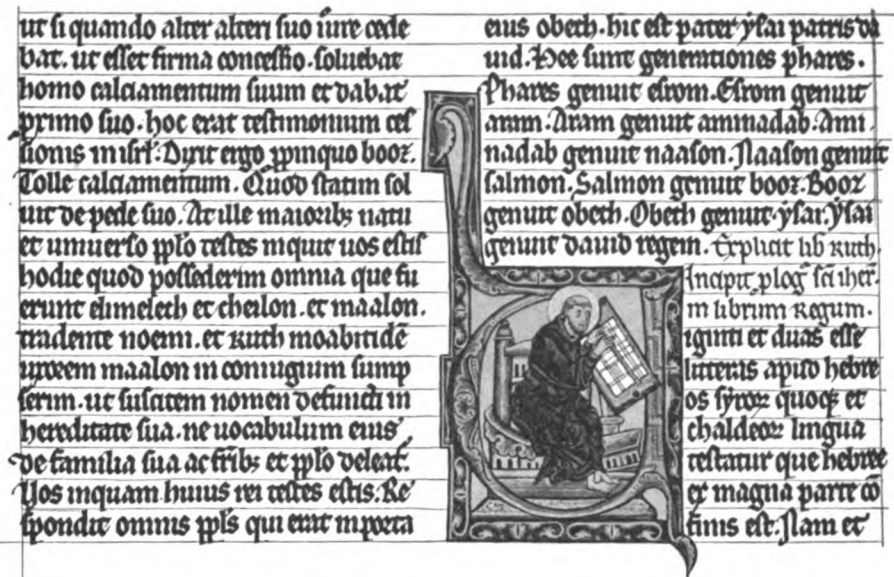 ut si quando alter alteri suo iure cede
bat. ut esset firma concessio. soluebat
homo calciamentum suum et dabat
primo suo. hoc erat testimonium ces
sionis in isrl'. Dixit ergo ppinquo booz.
Tolle calciamentum. Quod statim sol
uit de pede suo. At ille maiorib; natu
et uniuerso pplo testes inquit uos estis
hodie quod possederim omnia que fu
erunt elimelech et cheilon. et maalon.
tradente noemi. et Ruth moabitidē
uxorem maalon in coniugium sump
serim. ut suscitem nomen defuncti in
hereditate sua. ne uocabulum eius
de familia sua ac frib; et pplo deleat'.
Vos inquam huius rei testes estis. Re
spondit omnis ppls qui erat in porta
eius obeth. hic est pater ysai patris da
uid. Hee sunt generationes phares.
Phares genuit esrom. Esrom genuit
aram. Aram genuit aminadab. Ami
nadab genuit naason. Naason genuit
salmon. Salmon genuit booz. Booz
genuit obeth. Obeth genuit. ysai. ysai
genuit dauid regem. Explicit lib Ruth.
Incipit plog' sci iher.
in librum Regum.
iginti et duas esse
litteras apud hebre
os syroꝝ quoqꝫ et
chaldeoꝝ lingua
testatur que hebree
ex magna parte cō
finis est. Nam et